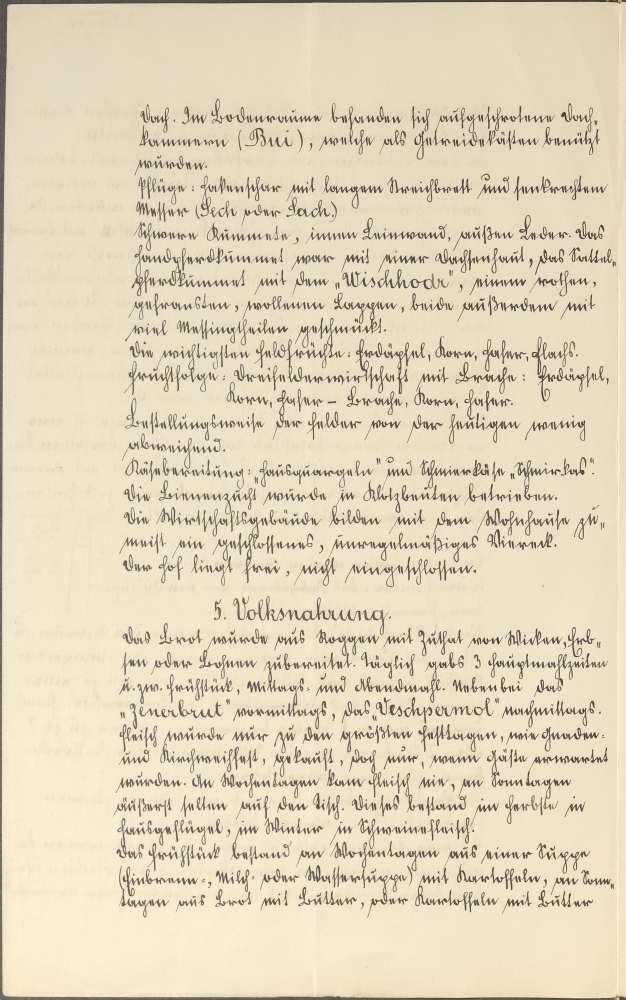 Dach. Im Bodenraume befanden sich aufgeschrotene Dach-
kammern (Bui), welche als Getreidekästen benützt
wurden.
Pflüge: Hakenschar mit langem Streichbrett und senkrechtem
Messer (Sech oder Sach.)
Schwere Kummete, innen Leinwand, außen Leder. Das
Handpferdkummet war mit einer Dachsenhaut, das Sattel-
pferdkummet mit dem „Wischhodr", einem rothen,
gefransten, wollenen Lappen, beide außerdem mit
viel Messingtheilen geschmückt.
Die wichtigsten Feldfrüchte: Erdäpfel, Korn, Hafer, Flachs.
Fruchtfolge: Dreifelderwirtschaft mit Brache: Erdäpfel,
Korn, Hafer – Brache, Korn, Hafer.
Bestellungsweise der Felder von der heutigen wenig
abweichend.
Käsebereitung: „Hausquargeln" und Schmierkäse „Schmirkas".
Die Bienenzucht wurde in Klotzbeuten betrieben.
Die Wirtschaftsgebäude bilden mit dem Wohnhause zu-
meist ein geschlossenes, unregelmäßiges Viereck.
Der Hof liegt frei, nicht eingeschlossen.
5. Volksnahrung.
Das Brot wurde aus Roggen mit Zuthat von Wicken, Erb-
sen oder Bohnen zubereitet. Täglich gabs 3 Hauptmahlzeiten
u. zw. Frühstück, Mittags- und Abendmahl. Nebenbei das
„Zenerbrut" vormittags, das „Veschpermol" nachmittags.
Fleisch wurde nur zu den größten Festtagen, wie Gnaden-
und Kirchweihfest, gekauft, doch nur, wenn Gäste erwartet
wurden. An Wochentagen kam Fleisch nie, an Sonntagen
äußerst selten auf den Tisch. Dieses bestand im Herbste in
Hausgeflügel, im Winter in Schweinefleisch.
Das Frühstück bestand an Wochentagen aus einer Suppe
(Einbrenn-, Milch- oder Wassersuppe) mit Kartoffeln, an Sonn-
tagen aus Brot mit Butter, oder Kartoffeln mit Butter